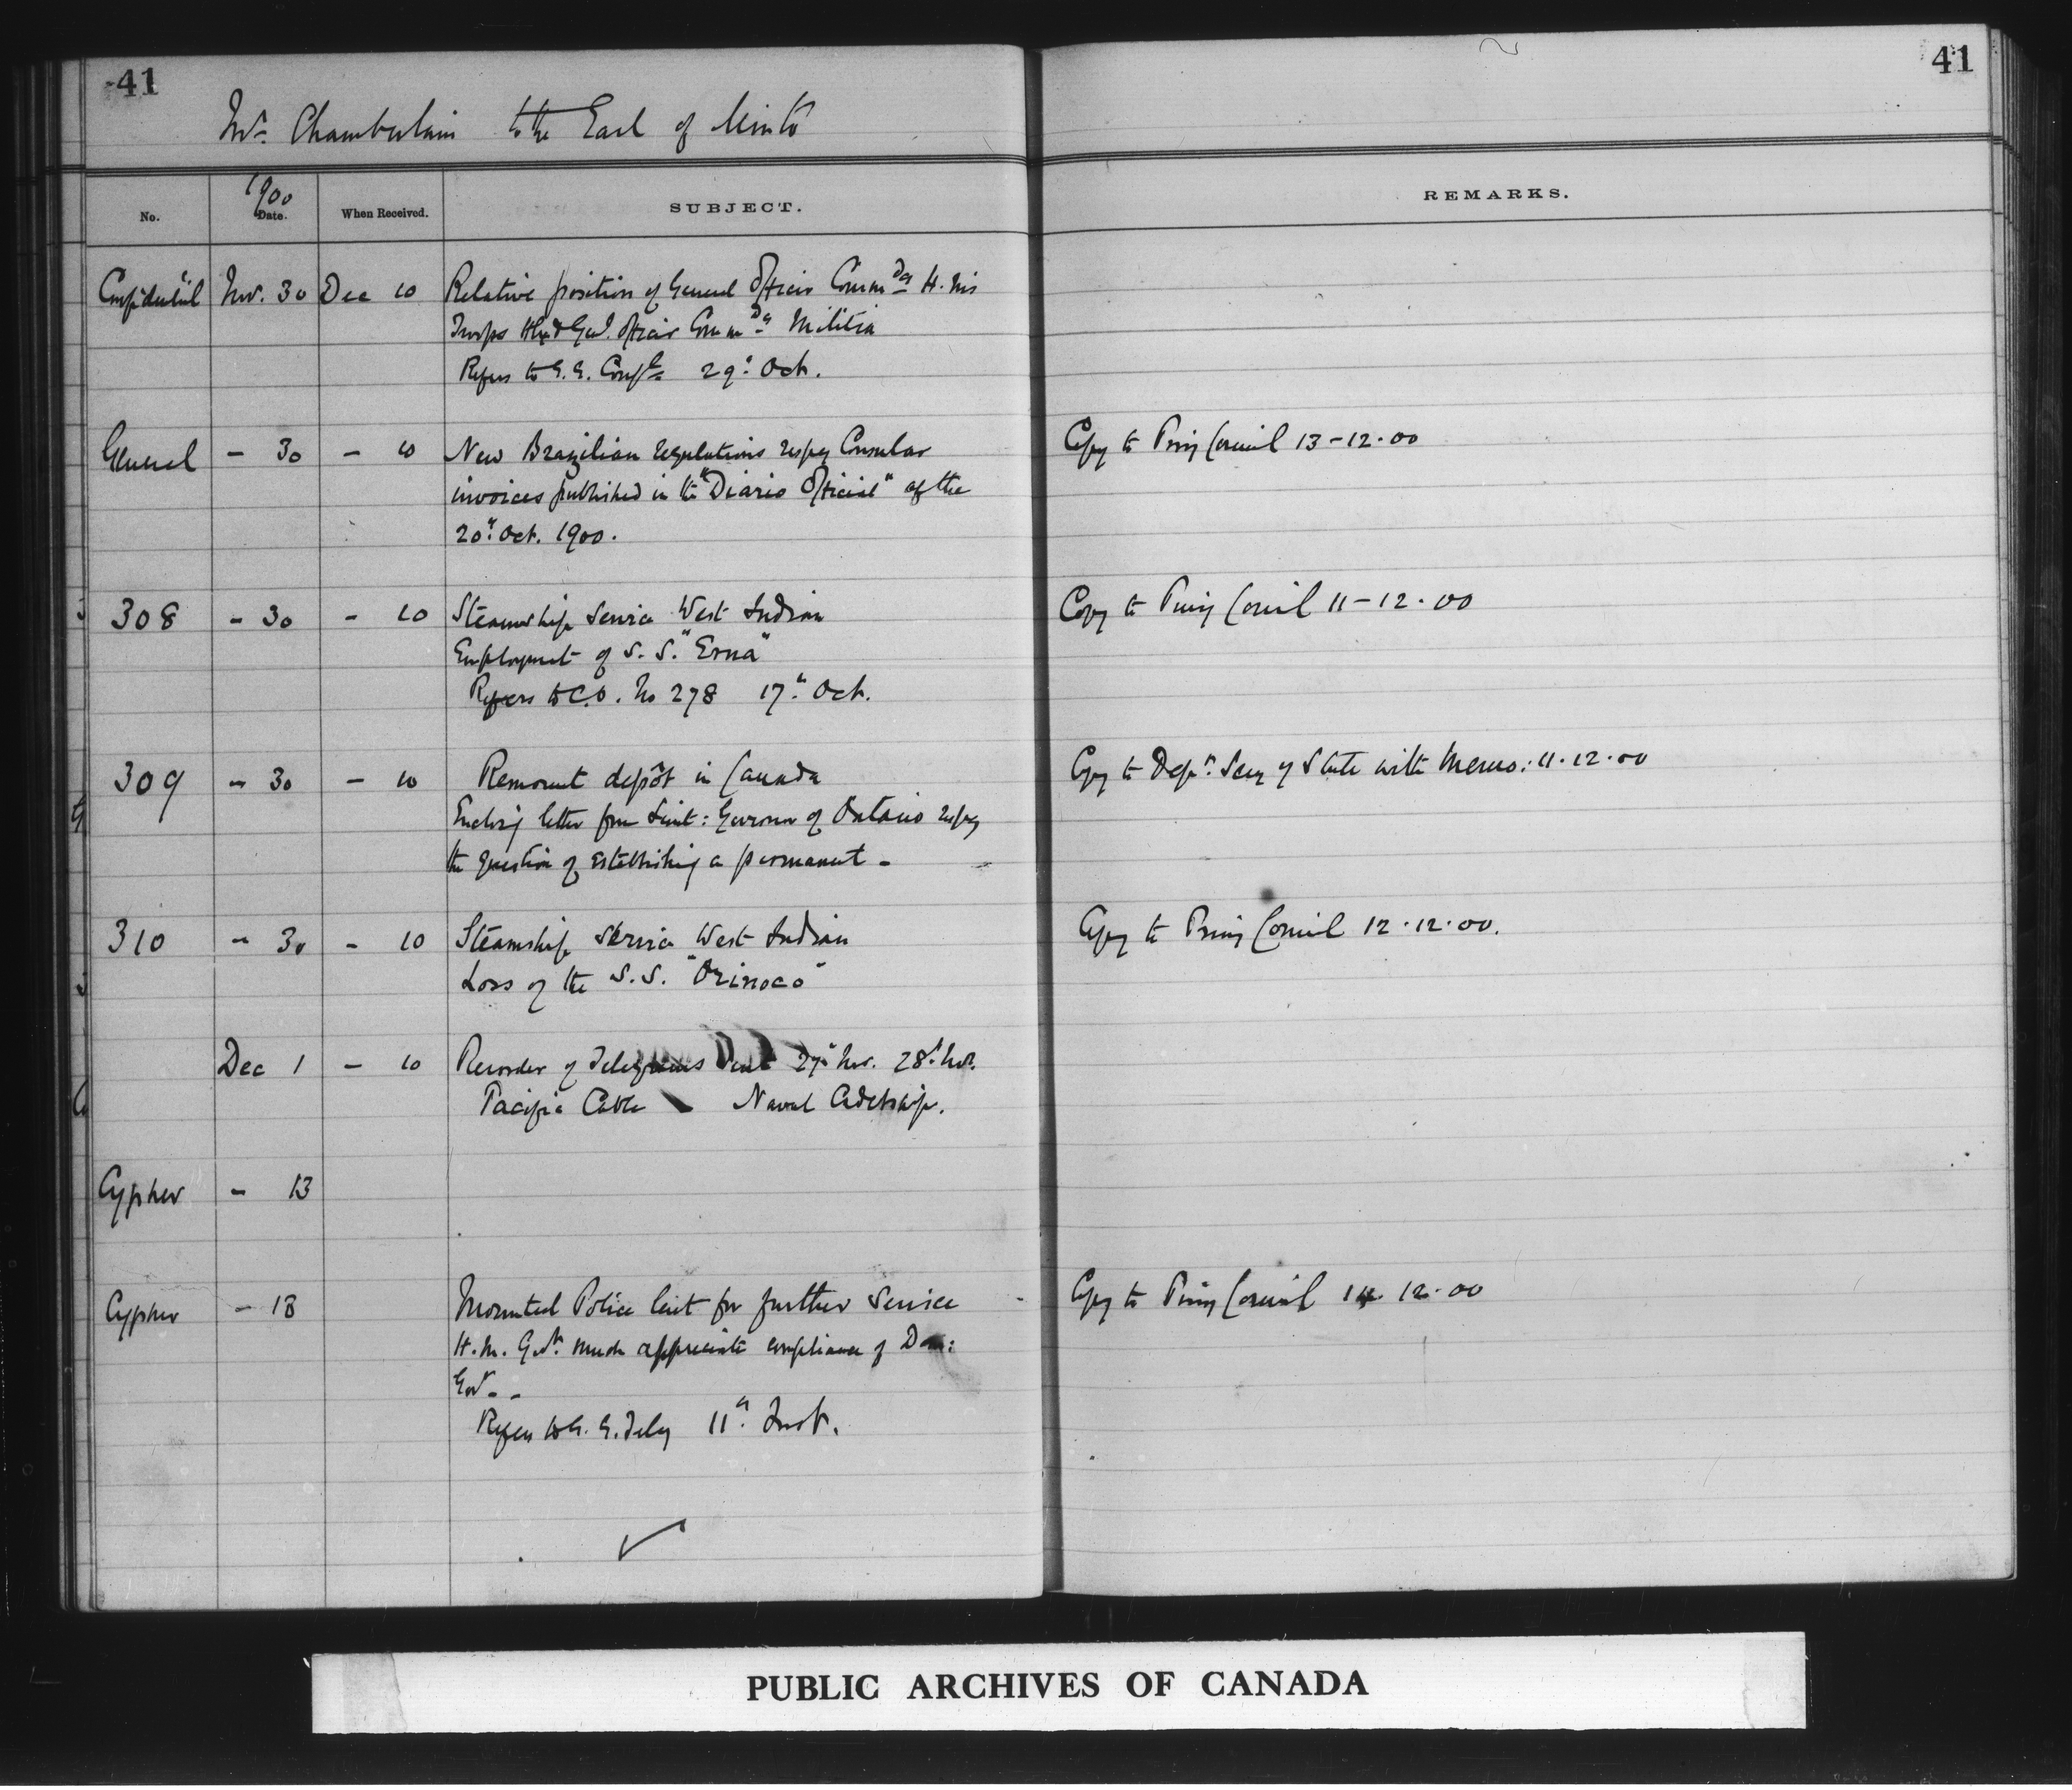 41
41
Mr. Chamberlain to the Earl of Minto
1900
No.
Date.
When Received.
SUBJECT.
REMARKS.
Confidential Nov. 30 Dec 10 Relative position of General Officer Commdg H. M's
Troops Hfx & Genl. Officer Commdg Militia
Refers to G. G. Confl 29th Oct.
General - 30 - 10 New Brazilian regulations respg Consular Copy to Privy Council 13-12-00
invoices published in the "Diario Official" of the
20th Oct. 1900.
308 - 30 - 10 Steamship Service West Indian Copy to Privy Council 11-12-00
Employment of S. S. "Erna"
Refers to C.O. No 278 17th Oct.
309 - 30 - 10 Remount depôt in Canada Copy to Dept. Secy of State with Memo: 11.12.00
Enclosg letter from Lieut: Governor of Ontario respg
the question of establishing a permanent -
310 - 30 - 10 Steamship Service West Indian Copy to Privy Council 12.12.00.
Loss of the S. S. "Orinoco"
Dec 1 - 10 Recorder of Telegrams Sent 27th Nov. 28th Nov.
Pacific Cable Naval Cadetship.
Cypher - 13
Cypher - 13 Mounted Police lent for further Service Copy to Privy Council 14.12.00
H. M. Govt. much appreciate compliance of Dom:
Govt. -
Refers to G. G. Teleg 11th Inst.
PUBLIC ARCHIVES OF CANADA